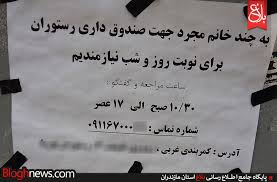 بلاغ
به چند خانم مجرد جهت صندوق داری رستوران
برای نوبت روز و شب نیازمندیم
ساعت مراجعه و گفتگو:
۱۰/۳۰ صبح الی ۱۷ عصر
شماره تماس: ۰۹۱۱۶۷۰۰۰
آدرس: کمربندی غربی ،
Bloghnews.com
پایگاه جامع اطلاع رسانی بلاغ استان مازندران